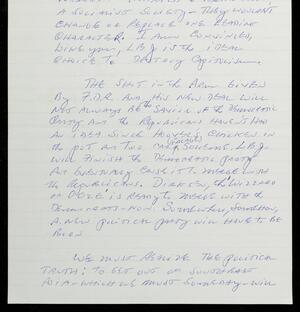 A SOCIALIST SOCIETY - THEY WOULDN'T
CHANGE OR REPLACE ONE LEADING
CHARACTER. I AM CONVINCED,
LIKE YOU, L.B.J. IS THE IDEAL
CHOICE TO DESTROY CAPITALISM.
THE SHOT IN THE ARM GIVEN
BY F.D.R. AND HIS NEW DEAL WILL
NOT ALWAYS BE THE SAVIOR OF THE DEMOCRATIC
PARTY AND THE REPUBLICANS HAVEN'T HAD
AN IDEA SINCE HOOVER'S CHICKEN IN
THE POT AND TWO CARS L.B.J.
WILL FINISH THE DEMOCRATIC PARTY
AND EVENTUALLY CAUSE IT TO MERGE WITH
THE REPUBLICANS. DIRKSEN, THE WIZARD
OF OOZE IS READY TO MERGE WITH THE
DEMOCRATS - NOW. SOMEWHERE, SOMEHOW,
A NEW POLITICAL PARTY WILL HAVE TO BE
BORN
WE MUST REALIZE THE POLITICAL
TRUTH: TO GET OUT OF SOUTHEAST
ASIA - WHICH WE MUST SOMEDAY - WILL